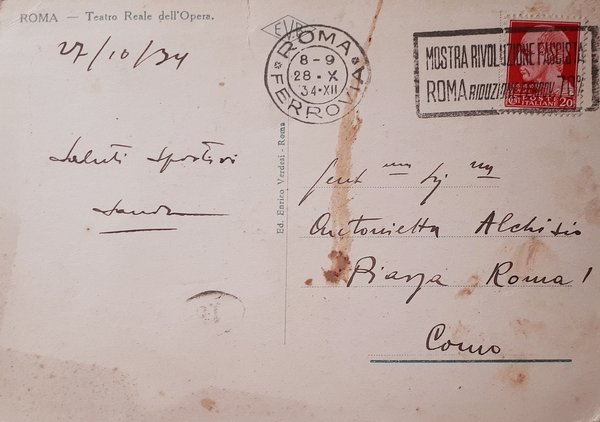 ROMA – Teatro Reale dell'Opera.
27/10/34
Saluti Sportivi
EVR
Ed. Enrico Verdesi - Roma
ROMA
8-9
28·X
34·XII
FERROVIA
MOSTRA RIVOLUZIONE FASCIS
ROMA RIDUZIONE 70
POSTE
ITALIANE 20
Gent ma Sig na
Antonietta Alchisio
Piazza Roma 1
Como